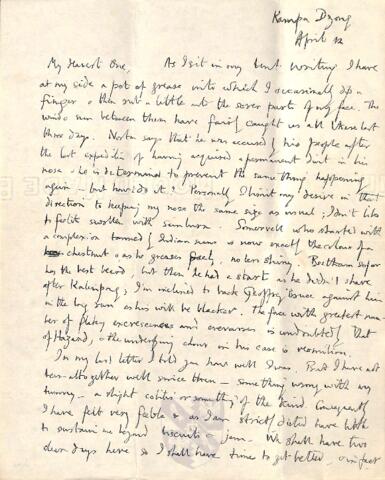 Kampa Dzong
April 12
My dearest One, As I sit in my tent writing I have
at my side a pot of grease into which I occasionally dip a
finger & then rub a little onto the sorer parts of my face. The
wind & sun between them have fairly caught us all these last
three days. Norton says that he was accused by his people after
the last expedition of having acquired a permanent dint in his
nose & he is determined to prevent the same thing happening
again; but how is it? Personally I limit my desire in that
direction to keeping my nose the same size as usual; I don't like
to feel it swollen with sunburn. Somervell who started with
a complexion tanned by Indian suns is now exactly the colour of a
chestnut & as he greases freely, no less shiny. Beetham so far
has the best beard, but then he had a start as he didn't shave
after Kalimpong; I'm inclined to back Geoffrey Bruce against him
in the long run as his will be blacker. The face with greatest num-
ber of flakey excrescences and is undoubtedly that
of Hazard, & the underlying colour in his case is vermilion.
In my last letter I told you how well I was. But I have not
been altogether well since then — something wrong with my
tummy — a slight colitis or something of the kind. Consequently
I have felt very feeble & as I am strictly dieted have little
to sustain me beyond biscuits & jam. We shall have two
clear days here so I shall have time to get better, in fact